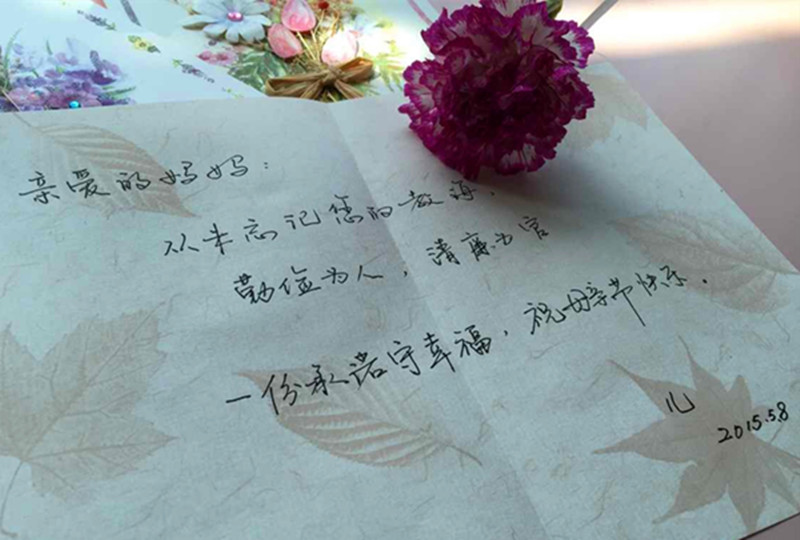 亲爱的妈妈：
从未忘记您的教诲.
勤俭为人，清廉为官
一份承诺守幸福，祝母亲节快乐.
儿
2015.5.8